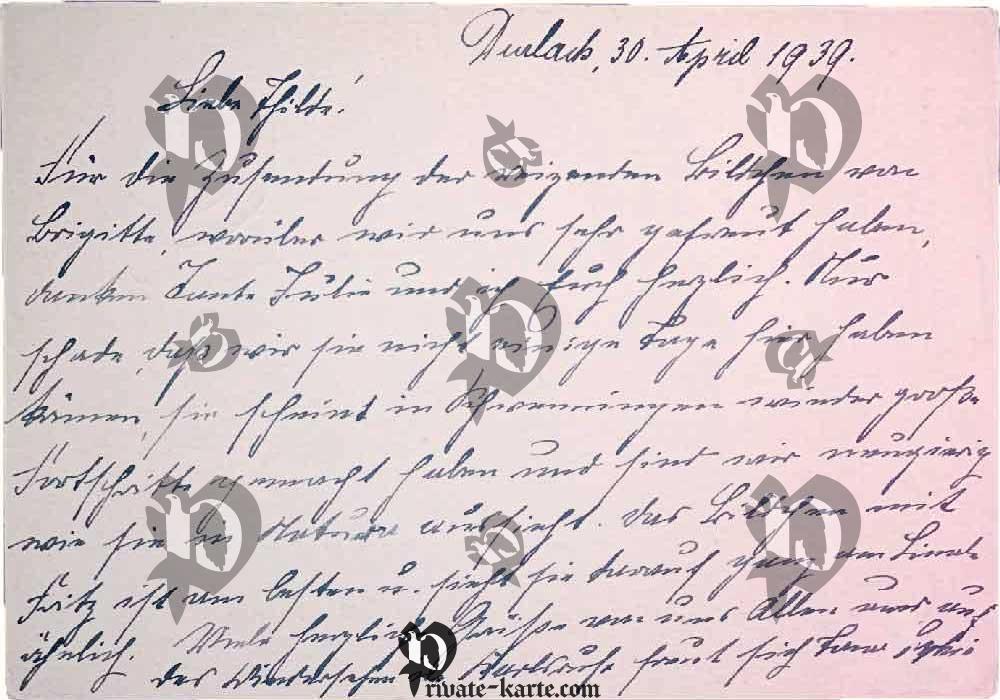 Durlach, 30. April 1939.
Liebe Thilde!
Für die Zusendung der reizenden Bildchen von
Brigitte, worüber wir uns sehr gefreut haben,
danken Tante Julie und ich Euch herzlich. Nur
schade, daß wir sie nicht einige Tage hier haben
können, sie scheint in Schwenningen wieder große
Fortschritte gemacht haben und sind wir neugierig
wie sie in Natura aussieht. Das Bildchen mit
Fritz ist am besten u. sieht sie darauf ganz
ähnlich. Viele herzliche Grüße von uns Allen und auf
das Wiedersehen Karlsruhe freut sich
Private-karte.com